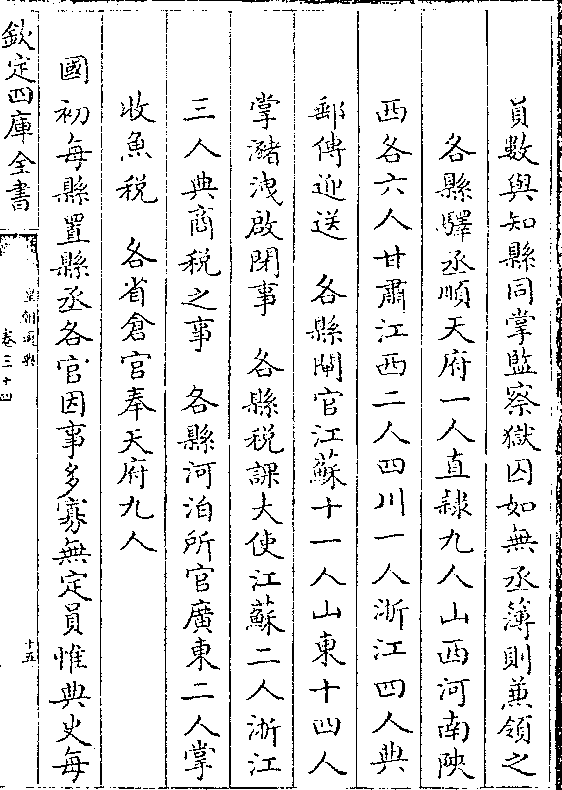 員數與知縣同掌監察獄囚如無丞簿則兼領之
各縣驛丞順天府一人直隸九人山西河南陜
西各六人甘肅江西二人四川一人浙江四人典
郵傳迎送　各縣閘官江蘇十一人山東十四人
掌瀦洩啟閉事　各縣税課大使江蘇二人浙江
三人典商税之事　各縣河泊所官廣東二人掌
收魚税　各省倉官奉天府九人
國初每縣置縣丞各官因事多寡無定員惟典史每
欽定四庫全書
皇朝通典
卷三十四
十五